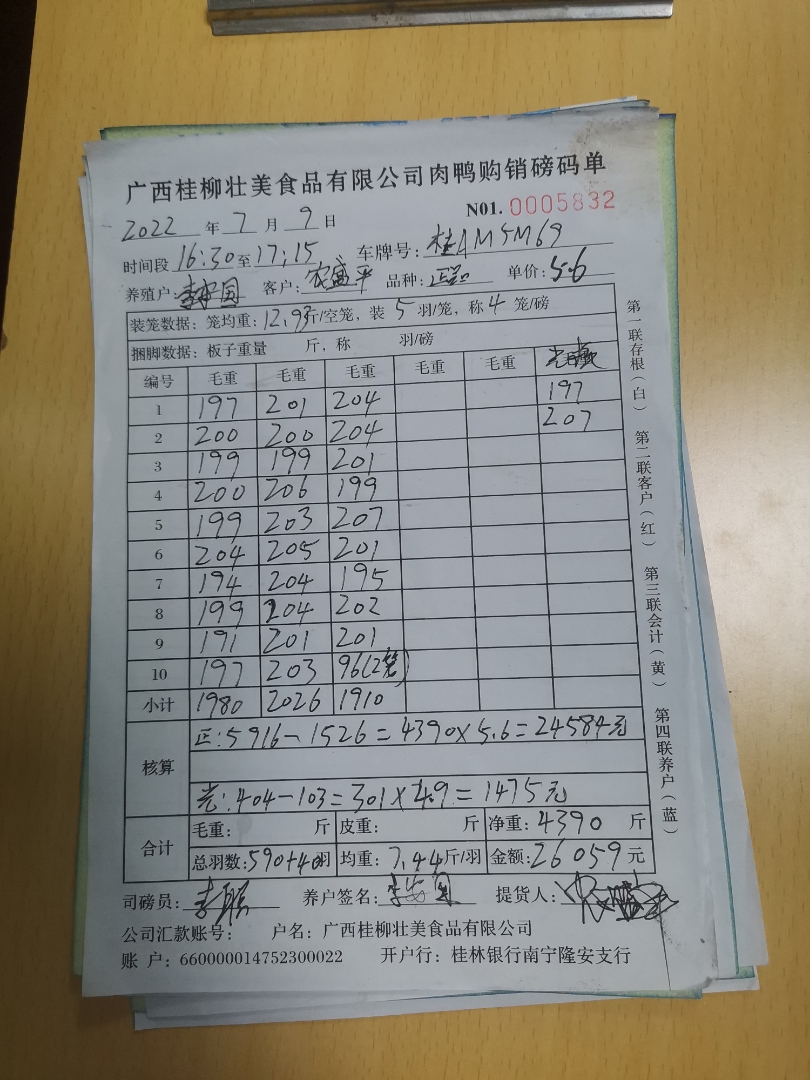 广西桂柳壮美食品有限公司肉鸭购销磅码单
N01. 0005832
2022 年 7 月 9 日
时间段 16:30 至 17:15 车牌号: 桂AM5M69
养殖户: 李安国 客户: 农盛平 品种: 正品 单价: 5.6
装笼数据: 笼均重: 12.93斤/空笼, 装 5 羽/笼, 称 4 笼/磅
捆脚数据: 板子重量 斤, 称 羽/磅
编号 毛重 毛重 毛重 毛重 毛重
1 197 201 204 197
2 200 200 204 207
3 199 199 201
4 200 206 199
5 199 203 207
6 204 205 201
7 194 204 195
8 199 204 202
9 191 201 201
10 197 203 96(2笼)
小计 1980 2026 1910
核算
正: 5916-1526=4390×5.6=24584元
光: 404-103=301×4.9=1475元
合计
毛重: 斤 皮重: 斤 净重: 4390 斤
总羽数: 590+40羽 均重: 7.44斤/羽 金额: 26059 元
司磅员: 养户签名: 李安国 提货人:
公司汇款账号: 户名: 广西桂柳壮美食品有限公司
账 户: 660000014752300022 开户行: 桂林银行南宁隆安支行
第一联存根(白) 第二联客户(红) 第三联会计(黄) 第四联养户(蓝)